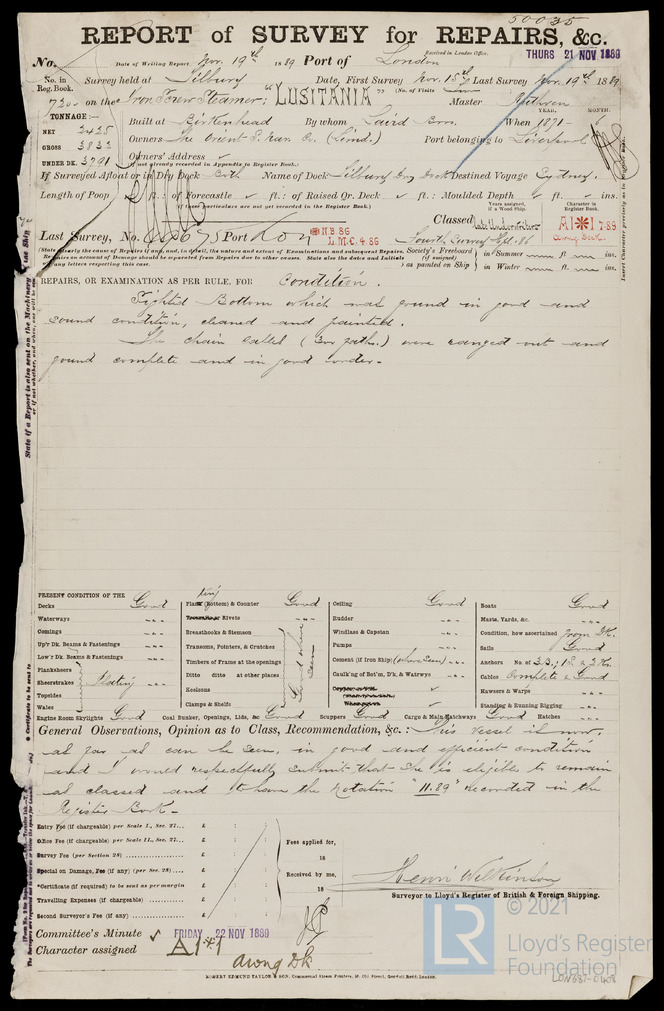 50035
REPORT of SURVEY for REPAIRS, &c.
Received in London Office.
THURS 21 NOV 1889
No. Date of Writing Report Nov. 19th 1889 Port of London
No. in Reg. Book. Survey held at Tilbury Date, First Survey Nov. 15th Last Survey Nov. 19th 1889
(No. of Visits
720 on the Iron Screw Steamer "LUSITANIA" Master Ruthven
TONNAGE:—
NET 2425
GROSS 3832
UNDER DK. 3791
Built at Birkenhead By whom Laird Bros. When 1871
YEAR. MONTH.
Owners The Orient S. Nav. Co. (Limd.) Port belonging to Liverpool
Owners' Address
(if not already recorded in Appendix to Register Book.)
If Surveyed Afloat or in Dry Dock Both Name of Dock Tilbury Dry Dock Destined Voyage Sydney.
Length of Poop ft.: of Forecastle ft.: of Raised Qr. Deck ft.: Moulded Depth ft. ins.
(if these particulars are not yet recorded in the Register Book.)
Years assigned, if a Wood Ship.
Character in Register Book.
Classed
A1*1 7·89
Awng Deck.
Last Survey, No. Port Lon
N B 86
L.M.C. 4.86
(State clearly the cause of Repairs if any, and, in detail, the nature and extent of Examinations and subsequent Repairs.
Repairs on account of Damage should be separated from Repairs due to other causes. State also the dates and Initials of any letters respecting this case.
Society's Freeboard (if assigned) as painted on Ship
in Summer ft. ins.
in Winter ft. ins.
REPAIRS, OR EXAMINATION AS PER RULE, FOR Condition.
Sighted Bottom which was found in good and
sound condition, cleaned and painted.
The chain cables (300 faths.) were ranged out and
found complete and in good order.
PRESENT CONDITION OF THE
Decks Good
Waterways " "
Comings " "
Up'r Dk. Beams & Fastenings " "
Low'r Dk. Beams & Fastenings " "
Planksheers
Sheerstrakes
Topsides
Wales
Plating
Plating (Bottom) & Counter Good
Rivets
Breasthooks & Stemson
Transoms, Pointers, & Crutches
Timbers of Frame at the openings
Ditto ditto at other places
Keelsons
Clamps & Shelfs
Good where seen
Ceiling Good
Rudder " "
Windlass & Capstan " "
Pumps " "
Cement (if Iron Ship) (where seen) " "
Caulk'ng of Bot'm, D'k, & Watrwys " "
Boats Good
Masts, Yards, &c. " "
Condition, how ascertained from Dk.
Sails Good
Anchors No. of 3 B.; 1 S. & 2 K.
Cables Complete & Good
Hawsers & Warps " "
Standing & Running Rigging " "
Engine Room Skylights Good Coal Bunker, Openings, Lids, &c Good Scuppers Good Cargo & Main Hatchways Good Hatches " "
General Observations, Opinion as to Class, Recommendation, &c.: This vessel is now,
as far as can be seen, in good and efficient condition
and I would respectfully submit that she is eligible to remain
as classed and to have the notation "11.89" recorded in the
Register Book.
Entry Fee (if chargeable) per Scale I., Sec. 27... £ : :
Office Fee (if chargeable) per Scale II., Sec. 27... £ : :
Survey Fee (per Section 28) £ : :
Special on Damage, Fee (if any) (per Sec. 28) £ : :
*Certificate (if required) to be sent as per margin £ : :
Travelling Expenses (if chargeable) £ : :
Second Surveyor's Fee (if any) £ : :
Fees applied for,
18
Received by me,
18
Henri Wilkinson
Surveyor to Lloyd's Register of British & Foreign Shipping.
Committee's Minute FRIDAY 22 NOV 1889
Character assigned A1*1
Awng Dk
ROBERT EDMUND TAYLOR & SON, Commercial Steam Printers, 19, Old Street, Goswell Road, London.
© 2021
LR
Lloyd's Register
Foundation
LON687-0408